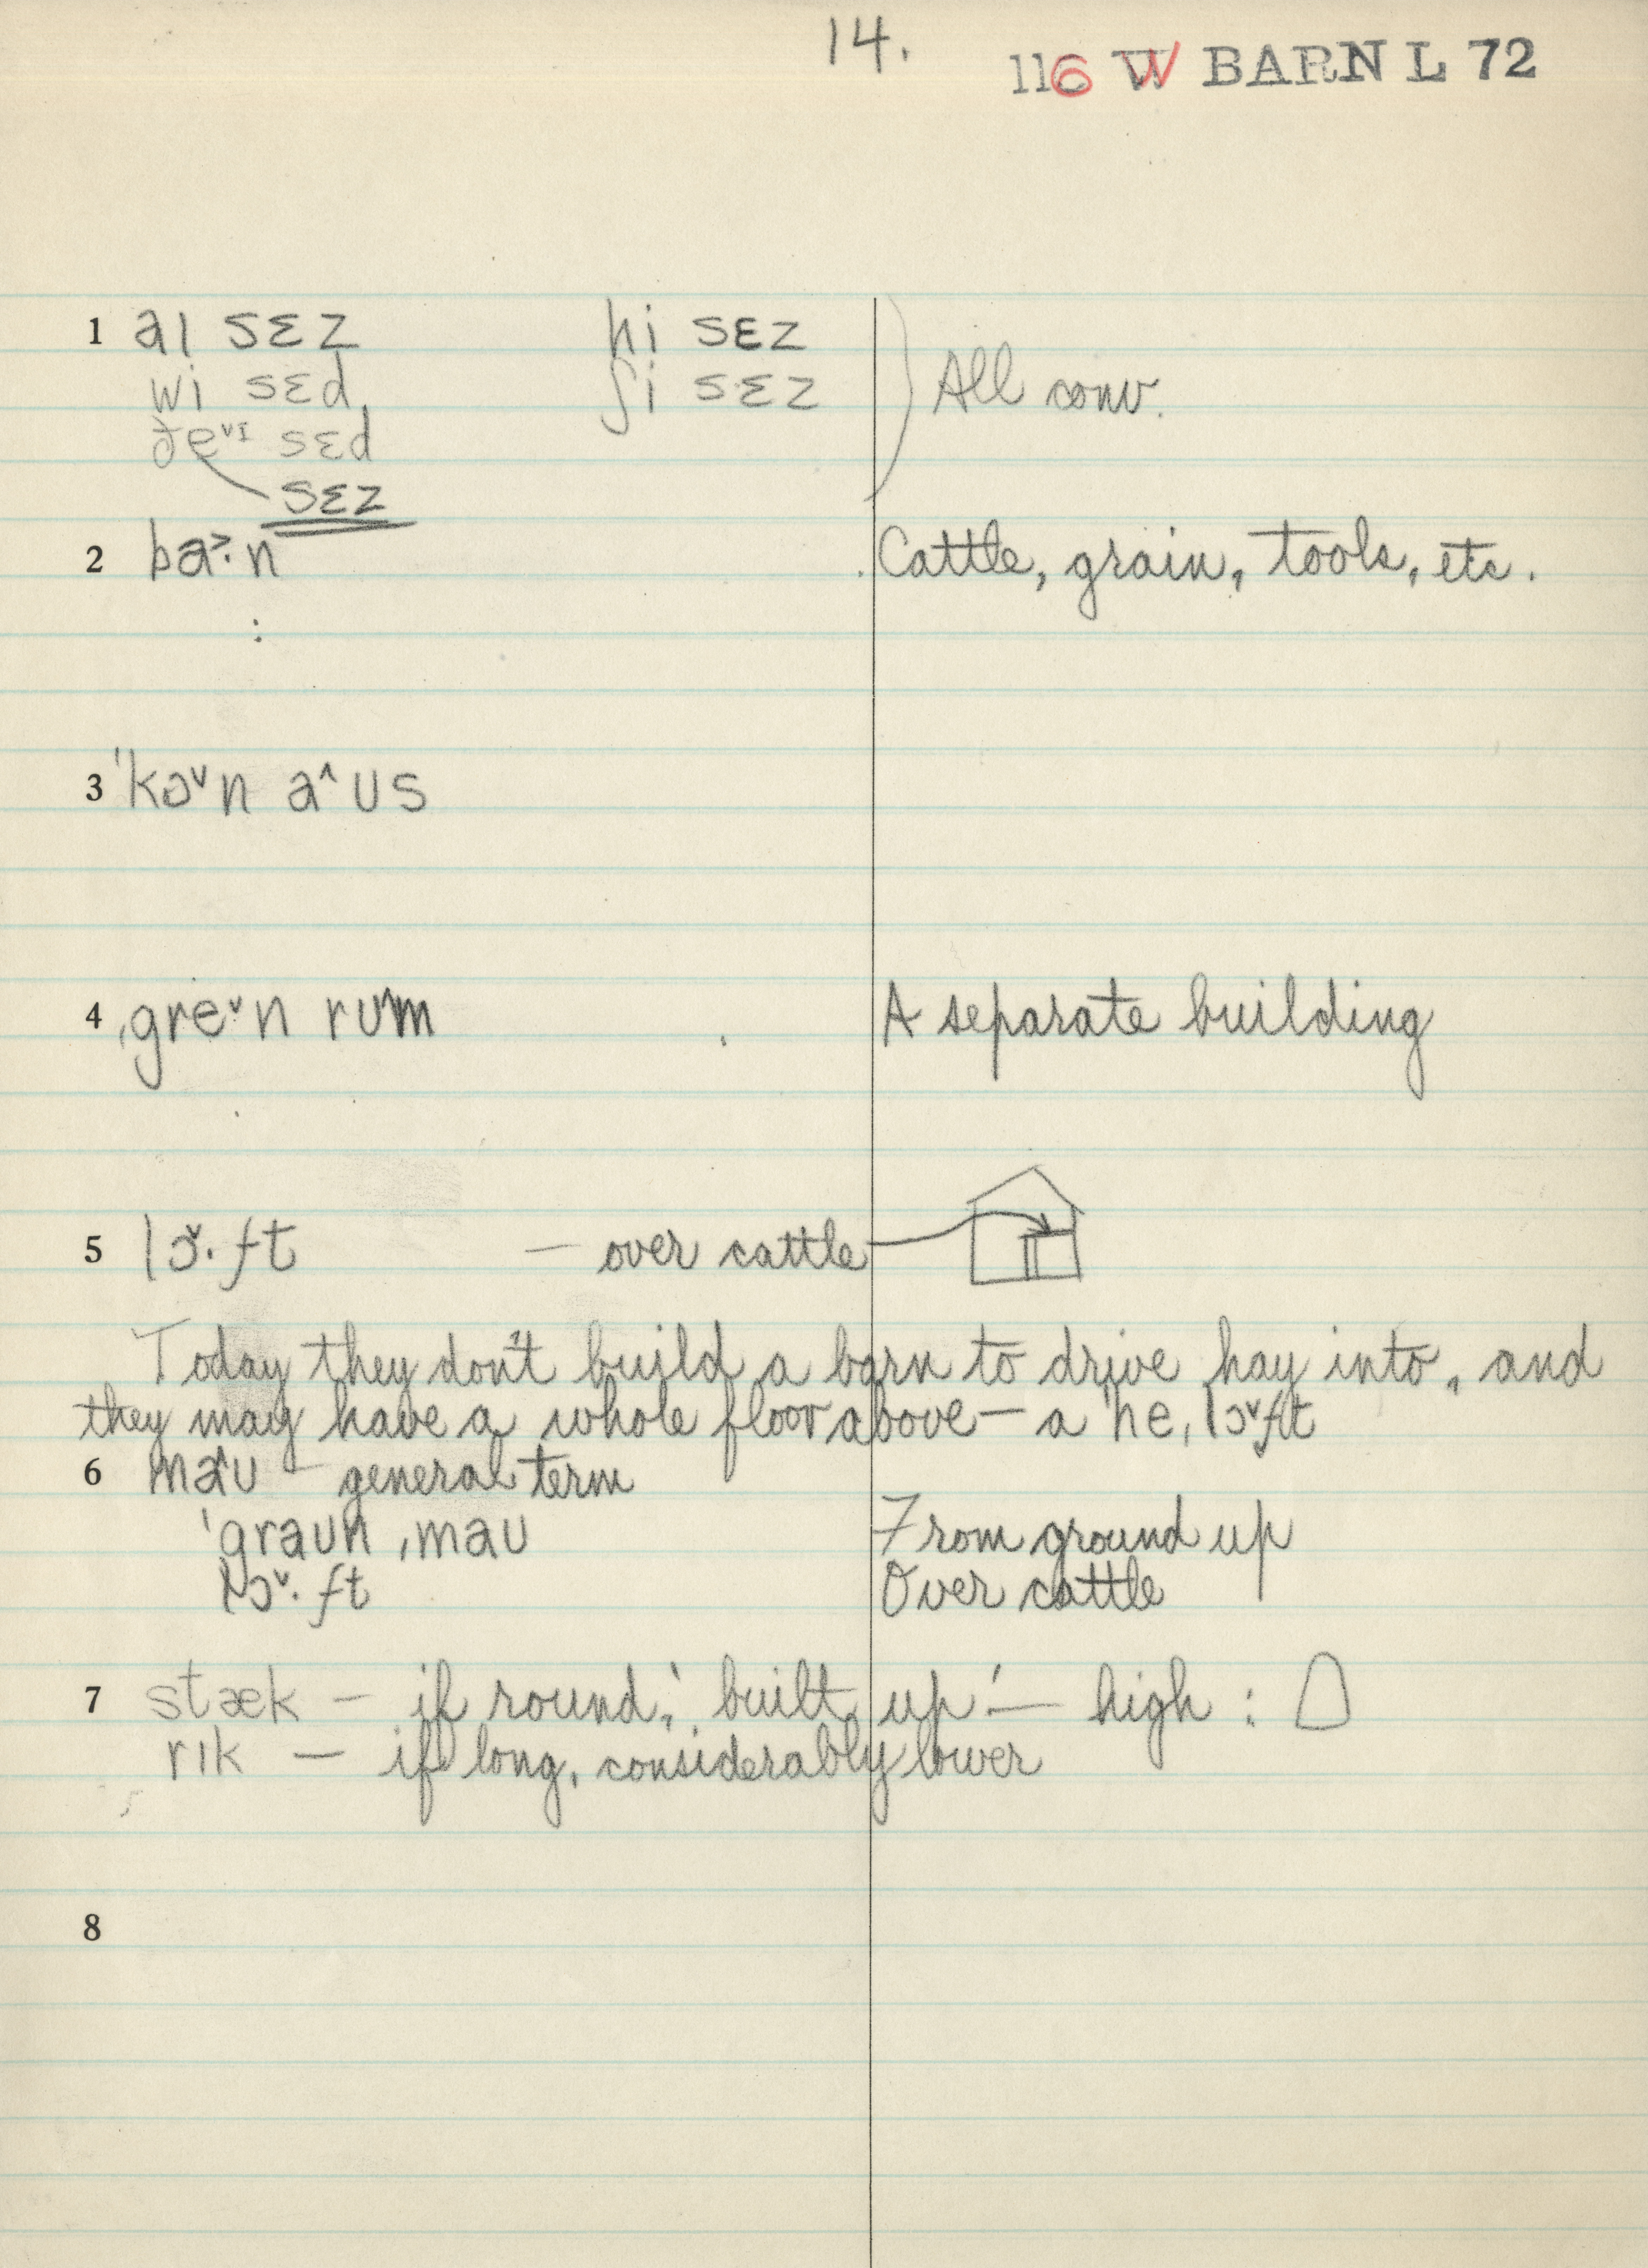 14.
116 W BARN L 72
1 aɪ sɛz hi sɛz
wi sɛd ʃi sɛz All conv.
ðe˅ɪ sɛd
sɛz
2 ba˃·n Cattle, grain, tools, etc.
3 ˈkɔ˅n a˄ʊs
4 ˌgre˅·n rʊm A separate building
5 lɔ˅·ft — over cattle
Today they don't build a barn to drive hay into, and
they may have a whole floor above — a ˈheˌlɔ˅ft
6 ma˄ʊ — general term
ˈgraʊn ˌmaʊ From ground up
lɔ˅·ft Over cattle
7 stæk — if round, 'built up' — high :
rɪk — if long, considerably lower
8